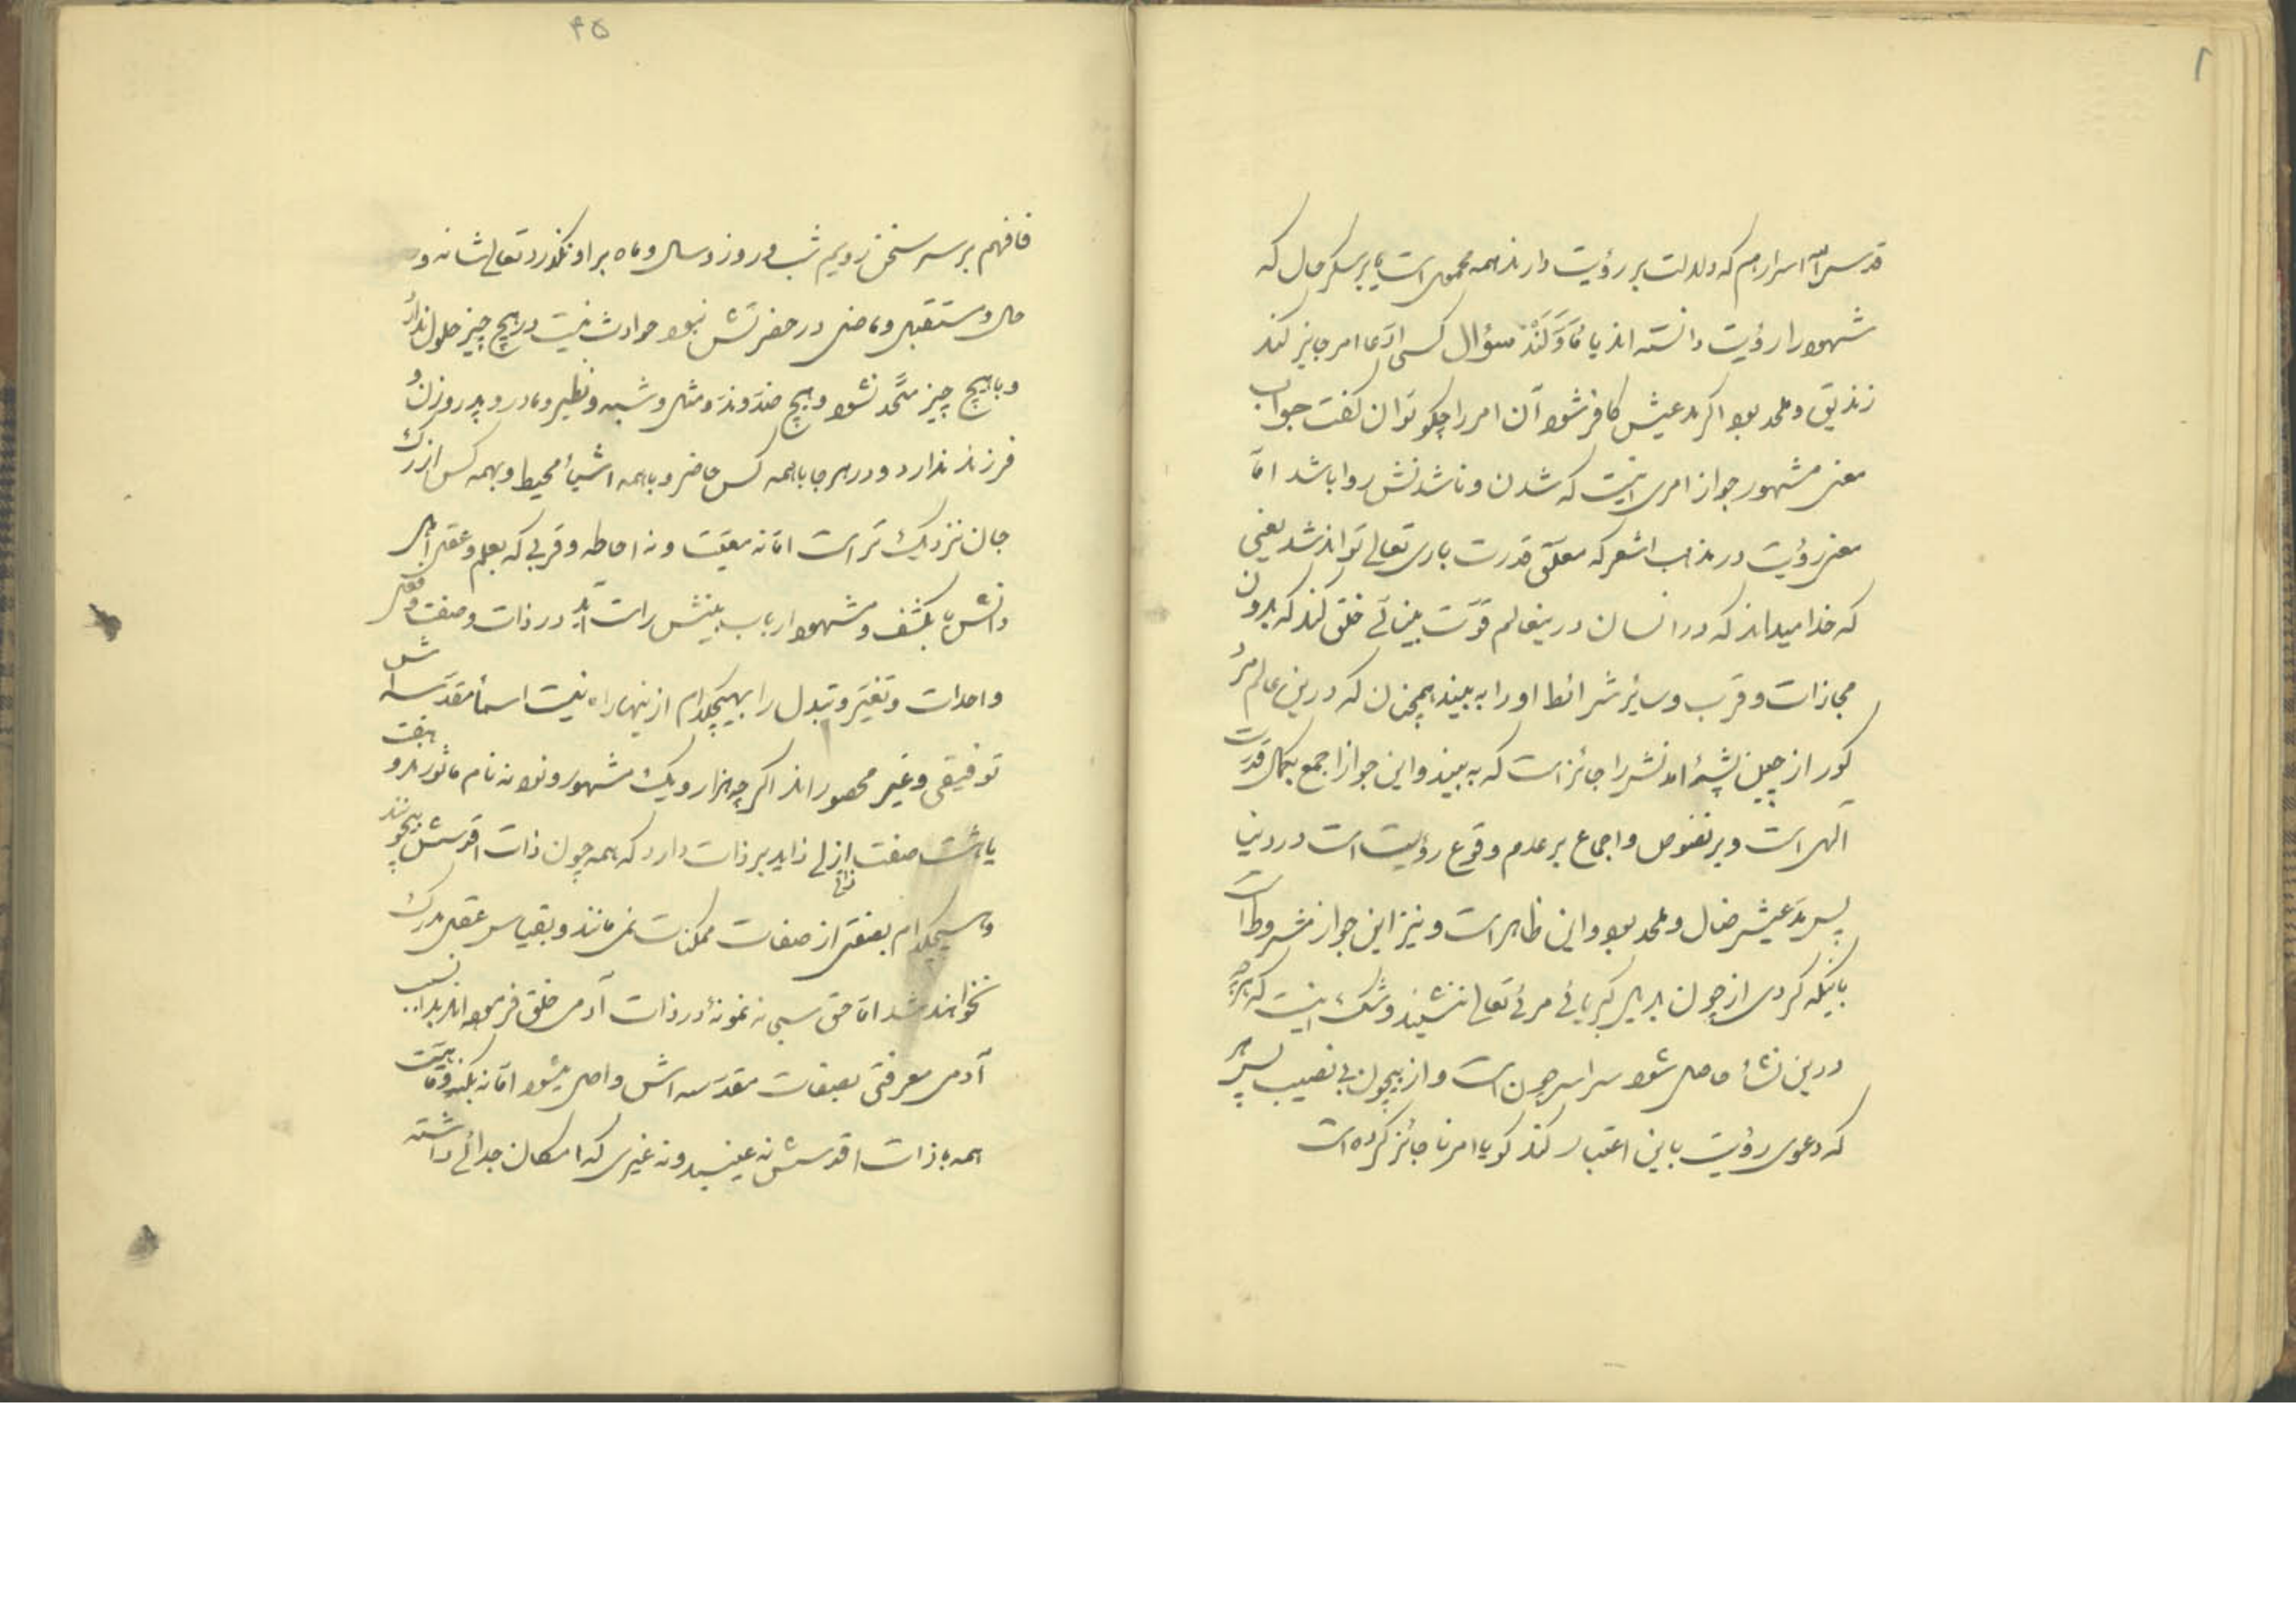 قدس الله اسرارهم که دلالت بر رؤیت دارند همه محمول است یا بر سکر حال که
شهود را رؤیت دانسته اند یا مأوّلند سؤال کسی ادّعا امر جایز کند
زندیق و ملحد بود اگر مدعیش کافر شود آن امر را چکونه توان کفت جواب
معنی مشهور جواز امری اینست که شدن و ناشدنش روا باشد امّا
معنی رؤیت در مذهب اشعر که معلّق قدرت باری تعالی تواند شد یعنی
که خدا میداند که در انسان درینعالم قوّت بینائے خلق کند که بدون
مجازات و قرب و سایر شرائط او را به بیند همچنان که درین عالم مر
کور از چین پشۀ اندلس را جائز است که به بیند و این جواز اجمع بکمال قدرت
آلهی است و بر نصوص و اجماع بر عدم وقوع رؤیت است در دنیا
پس مدعیش ضال و ملحد بود و این ظاهر است و نیز این جواز مشروط است
بآنکه کردی از چون بدیل کبریائی مرئے تعالی ننشیند و شک نیست که هرچه
درین نشأ حاصل شود سراسر چون است و از بیچون بے نصیب پس هر
که دعوی رؤیت باین اعتبار کند کویا امر ناجائز کرده است
۴۵
فافهم بر سر سخن رویم شب و روز و سال و ماه بر او نکذرد تعالی شانه و
حال و مستقبل و ماضی در حضرتش نبود حوادث نیست در هیچ چیز حلول ندارد
و با هیچ چیز متّحد نشود و هیچ ضد و ند و مثل و شبه و نظیر و مادر و پدر و زن و
فرزند ندارد و در هر جا با همه کس حاضر و با همه اشیأ محیط و بهمه کس از رک
جان نزدیک تر است امّا نه معیّت و نه احاطه و قربی که بعلم و عقل اهل
دانش یا بکشف و شهود ارباب بینش راست آید در ذات و صفت و فعل
واحد است و تغیّر و تبدل را بهیچکدام ازینها راه نیست اسمأ مقدّسه اش
توفیقی و غیر محصور اند اکر چه هزار و یک مشهور و نود نه نام ماثور اند و هفت
یا هشت صفت ازلی زاید بر ذات دارد که همه چون ذات اقدسش بیچونند
و هیچکدام بصفتی از صفات ممکنات نمی مانند و بقیاس عقل مدرک
نخواهند شد امّا حق سبحانه نمونۀ در ذات آدمی خلق فرموده اند بدان سبب
آدمی معرفتی بصفات مقدّسه اش واصل میشود امّا نه بکنه و ماهیّت
همه با ذات اقدسش نه عینند و نه غیری که امکان جدائے داشته